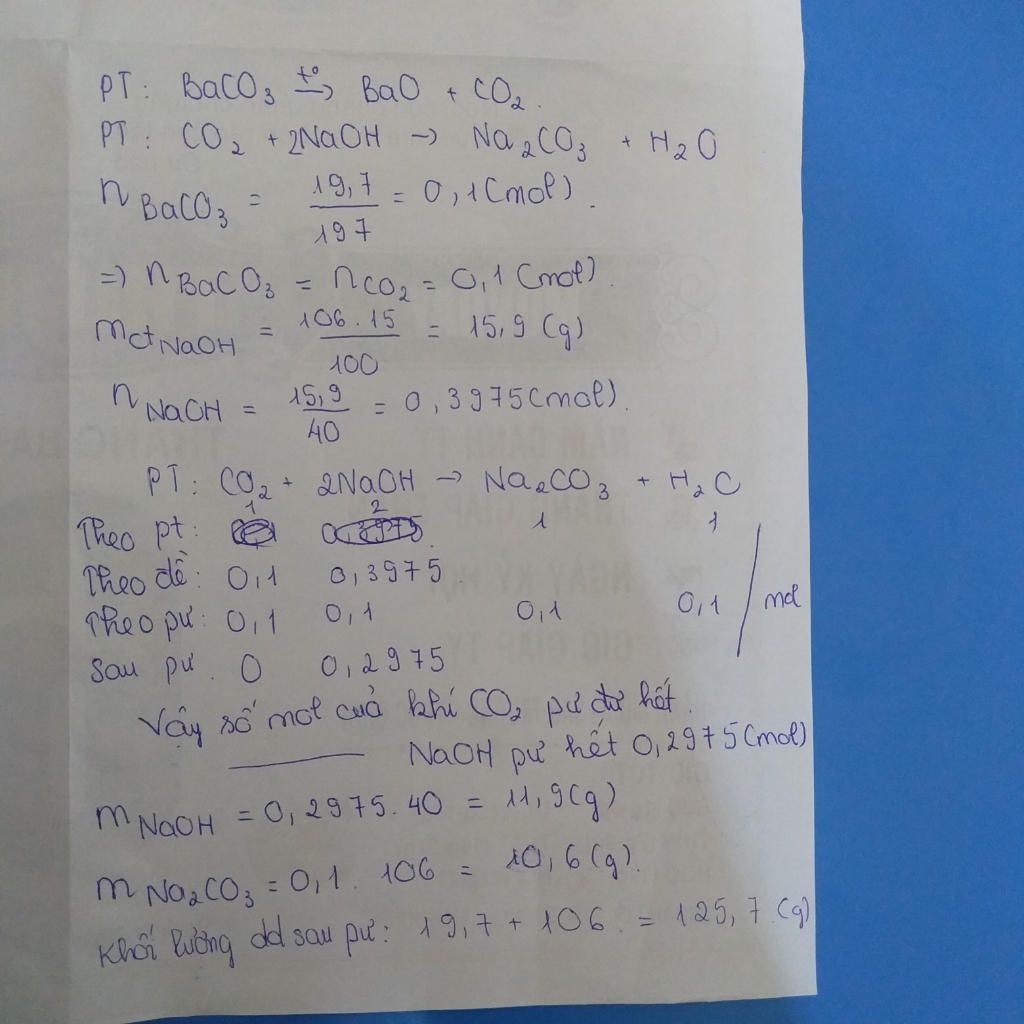 PT: BaCO3 t°→ BaO + CO2.
PT: CO2 + 2NaOH → Na2CO3 + H2O
nBaCO3 = 19,7/197 = 0,1(mol).
=) nBaCO3 = nCO2 = 0,1(mol).
mctNaOH = 106.15/100 = 15,9(g)
nNaOH = 15,9/40 = 0,3975(mol).
PT: CO2 + 2NaOH → Na2CO3 + H2O
Theo pt: 1 2 1 1
Theo đề: 0,1 0,3975
Theo pư: 0,1 0,1 0,1 0,1 / mol
Sau pư. 0 0,2975
Vậy số mol của khí CO2 pư hết.
NaOH pư hết 0,2975(mol)
mNaOH = 0,2975.40 = 11,9(g)
mNa2CO3 = 0,1. 106 = 10,6(g).
Khối lường dd sau pư: 19,7 + 106. = 125,7.(g)